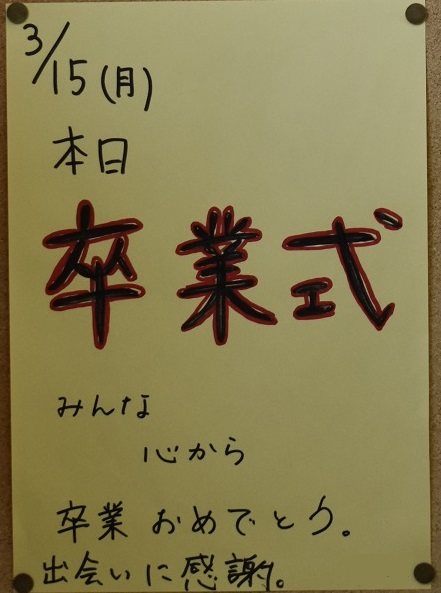 3/15(月)
本日
卒業式
みんな
心から
卒業おめでとう。
出会いに感謝。